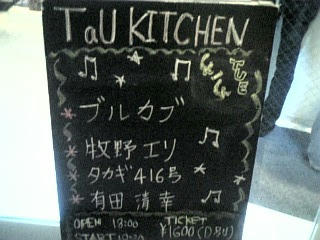 TaU KITCHEN
4/4 TUE
ブルカブ
牧野エリ
タカギ416号
有田清幸
OPEN 18:00
TICKET
¥1600(D別)
START